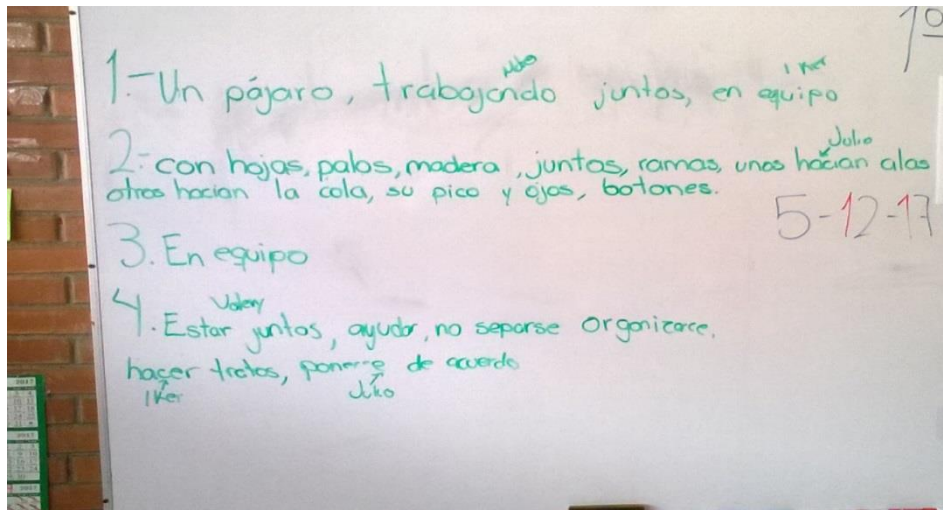 1º
Iker
1.- Un pájaro, trabajando juntos, en equipo
Julio
2.- con hojas, palos, madera, juntos, ramas, unos hacían alas
otros hacian la cola, su pico y ojos, botones.
5-12-17
3. En equipo
Valery
4. Estar juntos, ayudar, no separse organizarce,
hacer tratos, ponerse de acuerdo
Iker
2017
2017